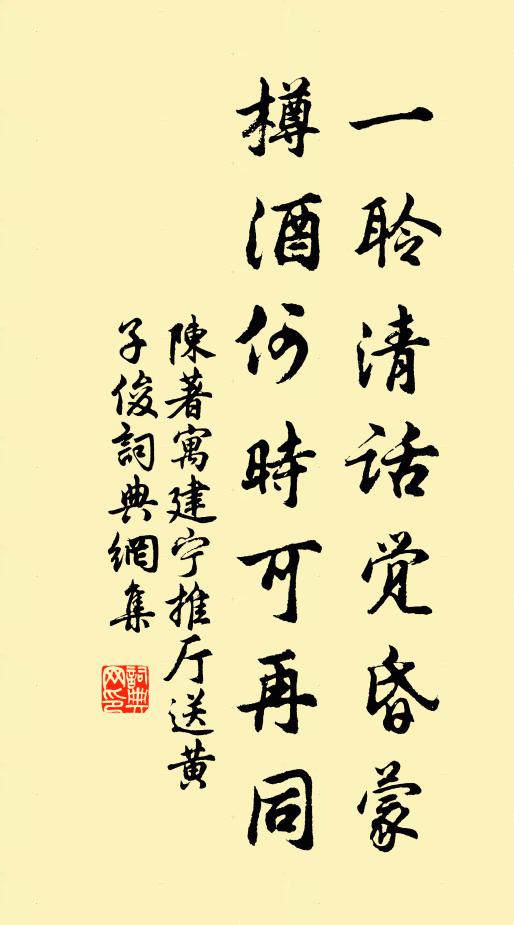 一聆清话觉昏蒙
樽酒何時可再同
陳著寓建宁推厅送黄
子俊詞典網集
詞典网印